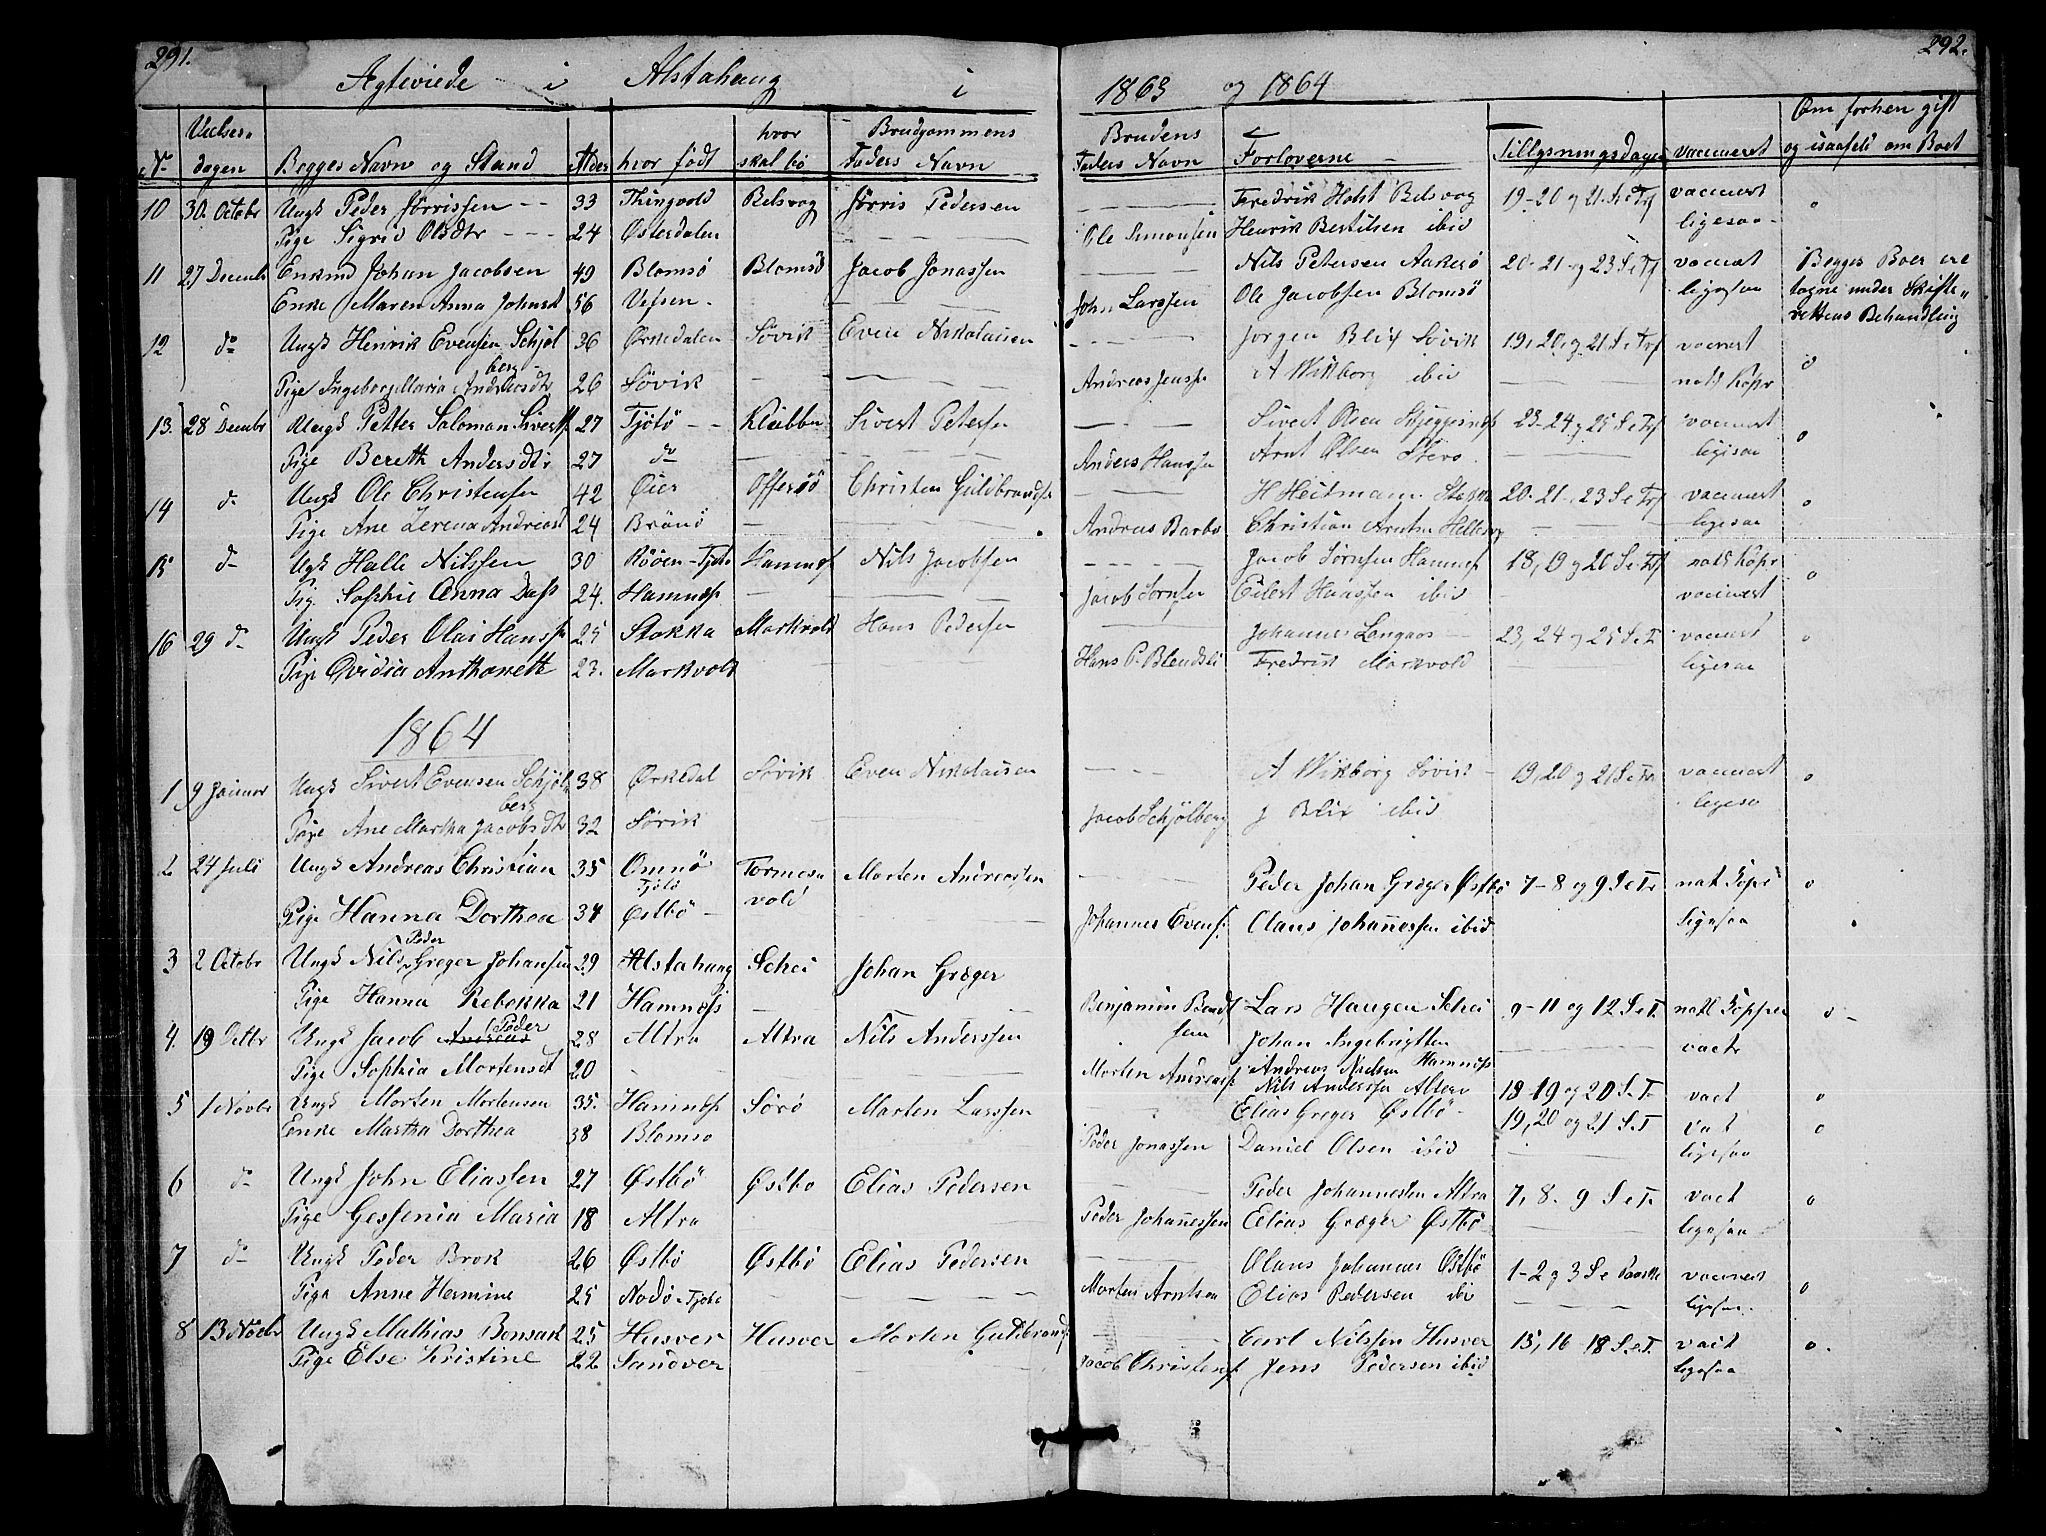 291. 292.
Ægteviede i Alstahaug i 1863 og 1864
N Vielses-dagen Begges Navn og Stand Alder hvor født hvor skal bo Brudgommens Faders Navn Brudens Faders Navn Forloverne Tillysningsdagen vaccineret Om forhen gift og isaafald om Boet
10 30. Octobr Ungk Peder Jørrissen 33 Thingvold Belsvog Jørris Pedersen Fredrik Holst Belsvog 19-20 og 21. S. e Trf vaccinert o
Pige Sigrid Olsdtr 24 Østerdalen Ole Simonsen Henrik Bertilsen ibid ligesaa
11 27 Decembr Enkmd Johan Jacobsen 49 Blomsø Blomsø Jacob Jonassen Nils Petersen Aakerø 20-21 og 23 S. e Trf vaccinat Begges Boer ere
Enke Maren Anna Johnsd 56 Vefsen John Larssen Ole Jacobsen Blomsø ligesaa tagne under Skifte-
rettens Behandling
12 do Ungk Henrik Evensen Schjølberg 36 Ørkedalen Søvik Even Nikolaisen Jørgen Blix Søvik 19, 20, og 21 S. e Trf vaccinert o
Pige Ingeborg Maria Andreasdtr 26 Søvik Andreas Jenss. A Wikborg ibid natl Köpr
13. 28 Decembr Ungk Petter Saloman Sivertss. 27 Tjötö Klubben Sivert Petersen Sivert Olsen 23-24 og 25 S. e Trf vaccinert o
Pige Bereth Andersdtr 27 do Anders Hanssen Arnt Olsen ligesaa
14 do Ungk Ole Christensen 42 Øier Offersø Christen Guldbrandss. H Heitmann 20-21. 23 S. e Trf vaccinert o
Pige Ane Zerena Andreasd 24 Brönö Andreas Barbo Christian ligesaa
15 do Ugk Halle Nilssen 30 Rööen-Tjötö Hamnes Nils Jacobsen Jacob Hamnes 18, 19 og 20 S. e Trf natl Köpr o
Pig. Sophie Anna Dass 24. Hamnes Jacob Eilert Hanssen ibid vaccinert
16 29 do Ungk Peder Olai Hanss. 25 Stokka Markvold Hans Pedersen Johannes 23, 24 og 25 S. e T vaccinert o
Pige Ovidia Anthonette 23. Markvold Hans P. Fredrik Markvold ligesaa
1864
1 9 Januar Ungk Sivert Evensen Schjölberg 38 Ørkedal Søvik Even Nikolaisen A Wikborg Søvik 19, 20 og 21 S. e Tr vaccinert o
Pige Ane Martha Jacobsdtr 32 Søvik Jacob Schjölberg J Blix ibid ligesa
2 24 Juli Ungk Andreas Christian 35 Omnö Tjötö Tormosvold Morten Andreassen Peder Johan Greger Østbö 7-8 og 9 S. e Tr nat. Kopr o
Pige Hanna Dorthea 34 Østbö Johannes Evens. Olaus Johannessen ibid ligesaa
3 2 Octobr Ungk Nils Peder Greger Johansen 29 Alstahaug Schei Johan Græger
Pige Hanna Rebekka 21 Hamness Benjamin Lars Haugen Schei 9-11 og 12 S. e T. natl Kopper o
4. 19 Octbr Ungk Jacob Andreas Peder 28 Altra Altra Nils Anderssen Johan Ingebrigtsen vactr
Pige Sophia Mortensd 20 Morten Andreass. Andreas Nielsen Hamness
Nils Anderssen Altero 18-19 og 20 S. e. T. vact o
5 1 Novbr Ungk Morten Mortensen 35. Hamnes Sörö Morten Larssen Elias Greger Østbö 19, 20 og 21 S. e T vact o
Enke Martha Dorthea 38 Blomsö Peder Jonassen Daniel Olsen ibid ligesaa
6 do Ungk John Eliassen 27 Østbö Østbo Elias Pedersen Peder Johannessen Altra 7, 8. 9 S. e T. vact o
Pige Gesfenia Maria 18 Altra Peder Johannessen Elias Græger Østbö ligesaa
7 do Ungk Peder Brok 26 Østbö Østbö Elias Pedersen Olaus Johannes Østbö 1-2 og 3 S e Paaske vaccinert o
Pige Anne Hermine 25 Nodö-Tjötö Morten Arntsen Elias Pedersen ibi ligesaa
8 13 Növbr Ungk Mathias Bonsak 25 Husvær Husver Morten Guldbrands. Carl Nilssen Husver 15, 16 18 S. e. T. vact o.
Pige Else Kristine 22 Sandver Jacob Christens. Jens Pedersen ibid ligesaa